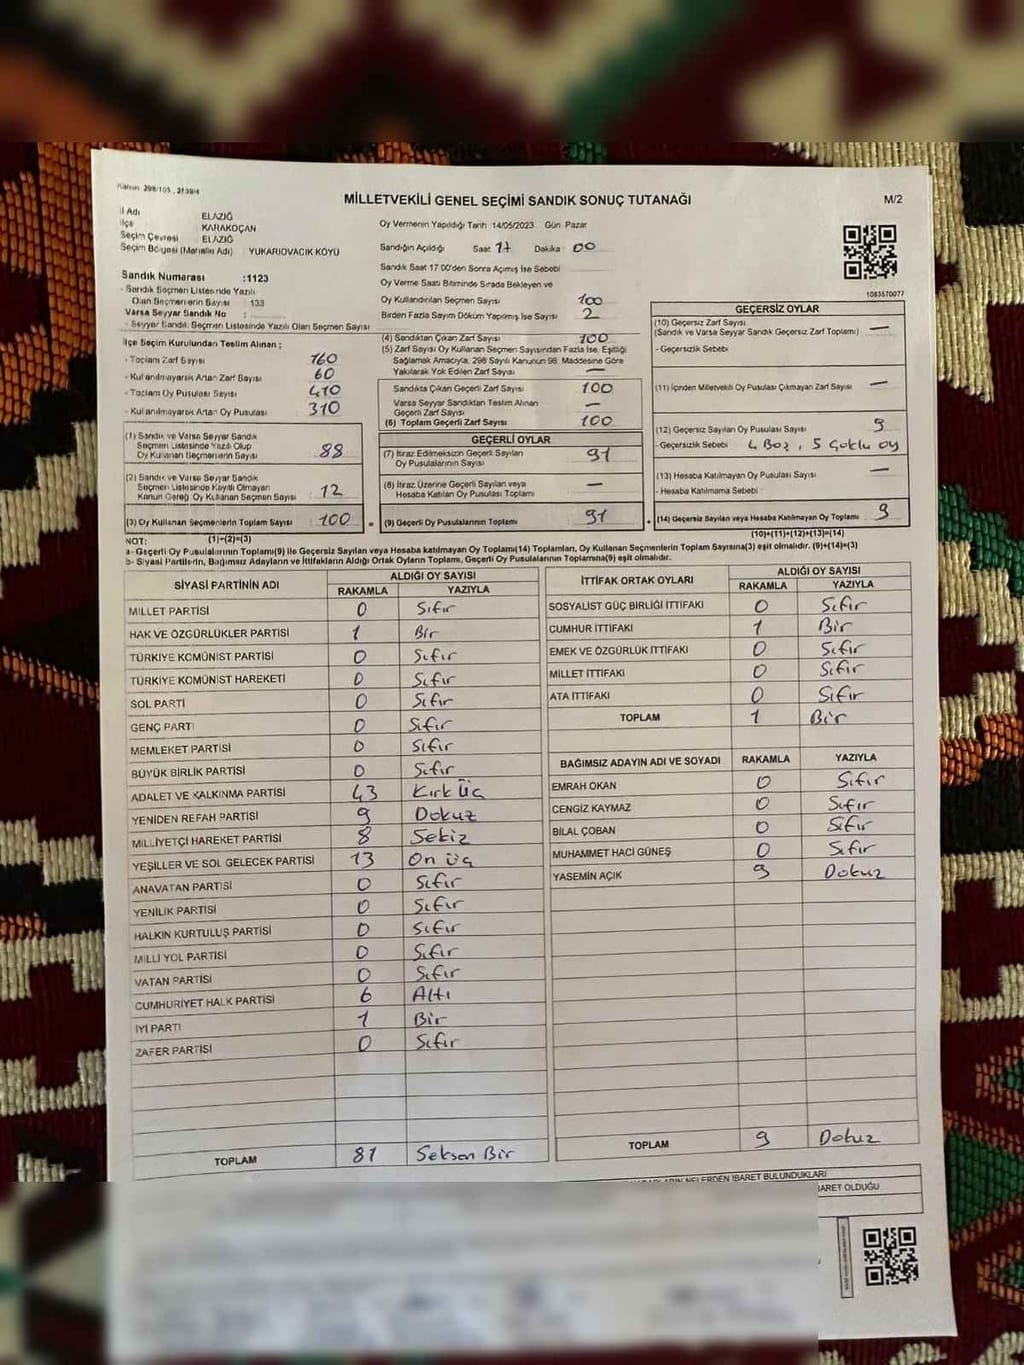 Kanun 298/105
MİLLETVEKİLİ GENEL SEÇİMİ SANDIK SONUÇ TUTANAĞI
M/2
İl Adı ELAZIĞ
İlçe KARAKOÇAN
Seçim Çevresi ELAZIĞ
Seçim Bölgesi (Mahalle Adı) YUKARIOVACIK KÖYÜ
Sandık Numarası :1123
- Sandık Seçmen Listesinde Yazılı
Olan Seçmenlerin Sayısı 133
Varsa Seyyar Sandık No :
- Seyyar Sandık Seçmen Listesinde Yazılı Olan Seçmen Sayısı
İlçe Seçim Kurulundan Teslim Alınan ;
- Toplam Zarf Sayısı 160
- Kullanılmayarak Artan Zarf Sayısı 60
- Toplam Oy Pusulası 410
- Kullanılmayarak Artan Oy Pusulası 310
(1) Sandık ve Varsa Seyyar Sandık
Seçmen Listesinde Yazılı Olup
Oy Kullanan Seçmenlerin Sayısı 88
(2) Sandık ve Varsa Seyyar Sandık
Seçmen Listesinde Kayıtlı Olmayan
Kanun Gereği Oy Kullanan Seçmen Sayısı 12
(3) Oy Kullanan Seçmenlerin Toplam Sayısı 100
(1)+(2)=(3)
Oy Vermenin Yapıldığı Tarih 14/05/2023 Gün Pazar
Sandığın Açıldığı Saat 17 Dakika 00
Sandık Saat 17:00'den Sonra Açılmış İse Sebebi
Oy Verme Saati Bitiminde Sırada Bekleyen ve
Oy Kullandırılan Seçmen Sayısı 100
Birden Fazla Sayım Döküm Yapılmış İse Sayısı 2
(4) Sandıktan Çıkan Zarf Sayısı 100
(5) Zarf Sayısı Oy Kullanan Seçmen Sayısından Fazla İse, Eşitliği
Sağlamak Amacıyla, 298 Sayılı Kanunun 98. Maddesine Göre
Yakılarak Yok Edilen Zarf Sayısı —
Sandıkta Çıkan Geçerli Zarf Sayısı 100
Varsa Seyyar Sandıktan Teslim Alınan
Geçerli Zarf Sayısı —
(6) Toplam Geçerli Zarf Sayısı 100
GEÇERLİ OYLAR
(7) İtiraz Edilmeksizin Geçerli Sayılan
Oy Pusulalarının Sayısı 91
(8) İtiraz Üzerine Geçerli Sayılan veya
Hesaba Katılan Oy Pusulası Toplamı —
(9) Geçerli Oy Pusulalarının Toplamı 91
1083570077
GEÇERSİZ OYLAR
(10) Geçersiz Zarf Sayısı
(Sandık ve Varsa Seyyar Sandık Geçersiz Zarf Toplamı) —
- Geçersizlik Sebebi
(11) İçinden Milletvekili Oy Pusulası Çıkmayan Zarf Sayısı —
(12) Geçersiz Sayılan Oy Pusulası Sayısı 9
- Geçersizlik Sebebi 4 Boş, 5 Çoklu oy
(13) Hesaba Katılmayan Oy Pusulası Sayısı —
- Hesaba Katılmama Sebebi
(14) Geçersiz Sayılan veya Hesaba Katılmayan Oy Toplamı 9
(10)+(11)+(12)+(13)=(14)
NOT:
a- Geçerli Oy Pusulalarının Toplamı(9) ile Geçersiz Sayılan veya Hesaba katılmayan Oy Toplamı(14) Toplamları, Oy Kullanan Seçmenlerin Toplam Sayısına(3) eşit olmalıdır. (9)+(14)=(3)
b- Siyasi Partilerin, Bağımsız Adayların ve İttifakların Aldığı Ortak Oyların Toplamı, Geçerli Oy Pusulalarının Toplamına(9) eşit olmalıdır.
SİYASİ PARTİNİN ADI ALDIĞI OY SAYISI
RAKAMLA YAZIYLA
MİLLET PARTİSİ 0 Sıfır
HAK VE ÖZGÜRLÜKLER PARTİSİ 1 Bir
TÜRKİYE KOMÜNİST PARTİSİ 0 Sıfır
TÜRKİYE KOMÜNİST HAREKETİ 0 Sıfır
SOL PARTİ 0 Sıfır
GENÇ PARTİ 0 Sıfır
MEMLEKET PARTİSİ 0 Sıfır
BÜYÜK BİRLİK PARTİSİ 0 Sıfır
ADALET VE KALKINMA PARTİSİ 43 Kırk Üç
YENİDEN REFAH PARTİSİ 9 Dokuz
MİLLİYETÇİ HAREKET PARTİSİ 8 Sekiz
YEŞİLLER VE SOL GELECEK PARTİSİ 13 On üç
ANAVATAN PARTİSİ 0 Sıfır
YENİLİK PARTİSİ 0 Sıfır
HALKIN KURTULUŞ PARTİSİ 0 Sıfır
MİLLİ YOL PARTİSİ 0 Sıfır
VATAN PARTİSİ 0 Sıfır
CUMHURİYET HALK PARTİSİ 6 Altı
İYİ PARTİ 1 Bir
ZAFER PARTİSİ 0 Sıfır
TOPLAM 81 Seksen Bir
İTTİFAK ORTAK OYLARI ALDIĞI OY SAYISI
RAKAMLA YAZIYLA
SOSYALİST GÜÇ BİRLİĞİ İTTİFAKI 0 Sıfır
CUMHUR İTTİFAKI 1 Bir
EMEK VE ÖZGÜRLÜK İTTİFAKI 0 Sıfır
MİLLET İTTİFAKI 0 Sıfır
ATA İTTİFAKI 0 Sıfır
TOPLAM 1 Bir
BAĞIMSIZ ADAYIN ADI VE SOYADI RAKAMLA YAZIYLA
EMRAH OKAN 0 Sıfır
CENGİZ KAYMAZ 0 Sıfır
BİLAL ÇOBAN 0 Sıfır
MUHAMMET HACİ GÜNEŞ 0 Sıfır
YASEMİN AÇIK 9 Dokuz
TOPLAM 9 Dokuz
NELERDEN İBARET BULUNDUKLARI
İBARET OLDUĞU